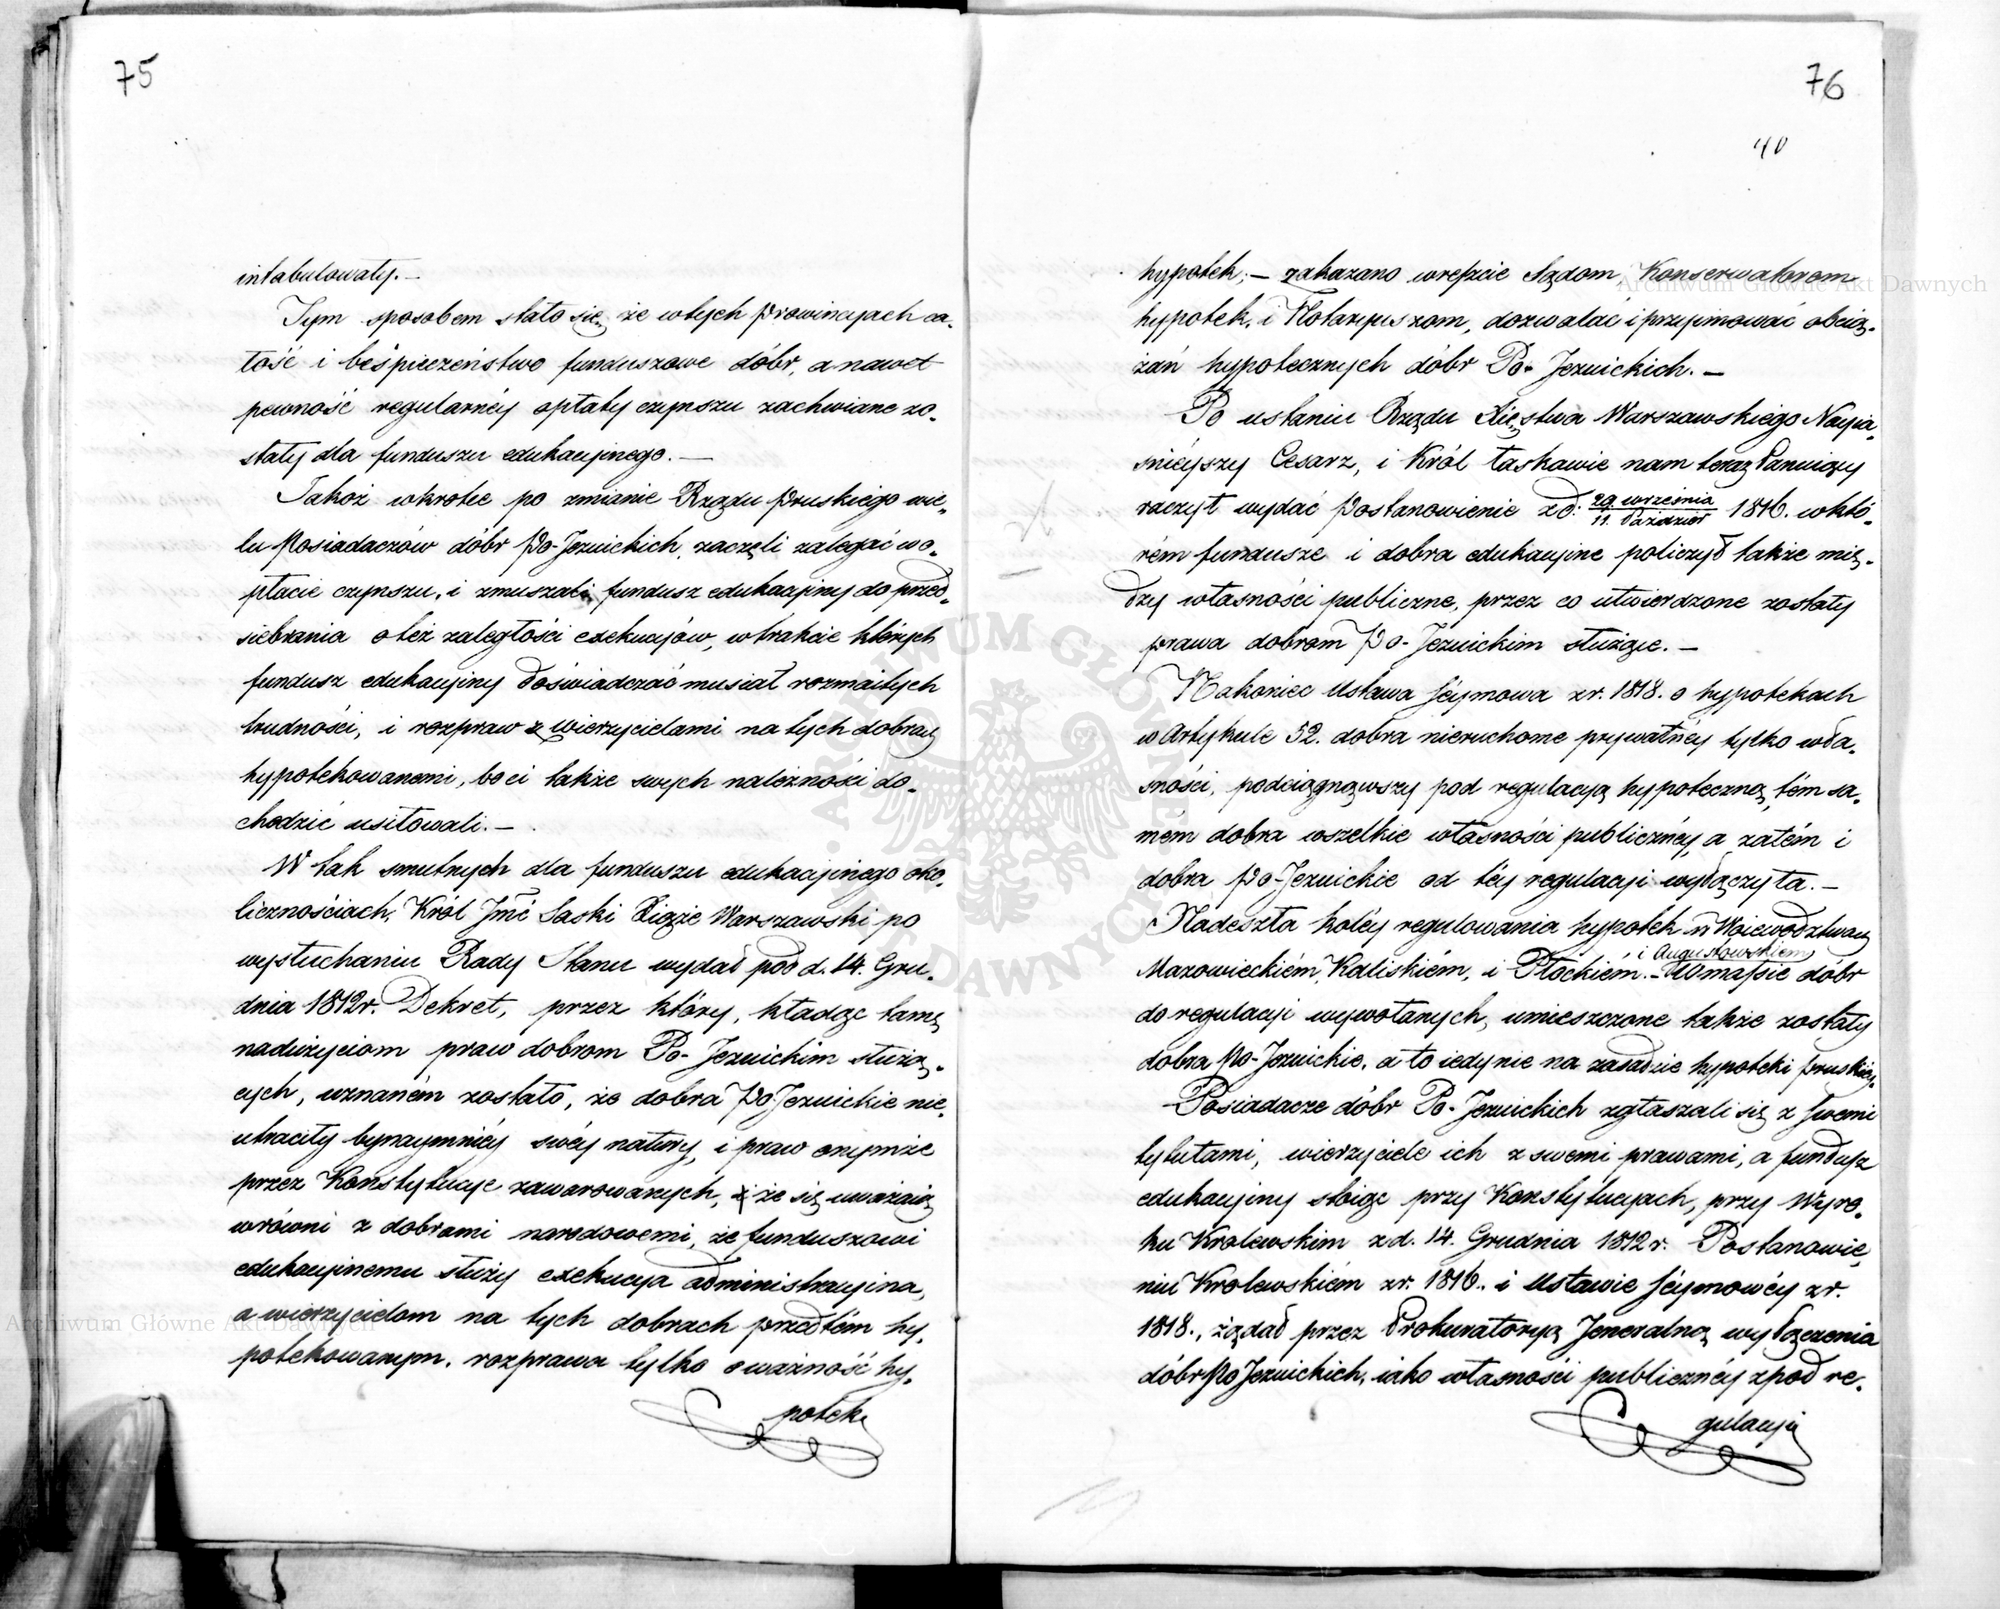 75
intabulowały.—
Tym sposobem stało się, że w tych Prowincyach ca-
łość i beśpieczeństwo funduszowe dóbr, a nawet
pewność regularnéy opłaty czynszu zachwiane zo-
stały dla funduszu edukacyinego.—
Jakoż wkrótce po zmianie Rządu Pruskiégo wie-
lu Posiadaczów dóbr Po-Jezuickich, zaczęli zalegać w o-
płacie czynszu, i zmuszali fundusz edukacyiny do przed-
siebrania o też zaległości exekucyów, w trakcie których
fundusz edukacyiny doświadczać musiał rozmaitych
trudności, i rozpraw z wierzycielami na tych dobrach
hypotekowanemi, bo ci także swych należności do-
chodzić usiłowali.—
W tak smutnych dla funduszu edukacyinego oko-
licznościach, Król Jmć Saski Xiąże Warszawski po
wysłuchaniu Rady Stanu wydał pod d. 14. Gru-
dnia 1812r. Dekret, przez który, kładąc tamę
nadużyciom praw dobrom Po-Jezuickim służą-
cych, uznaném zostało, że dobra Po-Jezuickie nie-
utraciły bynaymniéy swéy natury, i praw onymże
przez Konstytucye zawarowanych, że się uważaią
w równi z dobrami narodowemi, że funduszowi
edukacyinemu służy exekucya administracyina,
a wierzycielom na tych dobrach przedtém hy-
potekowanym, rozprawa tylko o ważność hy-
potek,
76
40
hypotek,— zakazano wreszcie Sądom, Konserwatorom
hypotek, i Notaryuszom, dozwalać i przyimować obcią-
żań hypotecznych dóbr Po-Jezuickich.—
Po ustaniu Rządu Xięstwa Warszawskiego Nayia-
śnieyszy Cesarz, i Król łaskawie nam teraz Panuiący
raczył wydać Postanowienie z d: 29 września / 11. Paździer 1816. w któ-
rém fundusze i dobra edukacyine policzył także mię-
dzy własności publiczne, przez co utwierdzone zostały
prawa dobrom Po-Jezuickim służące.—
Nakoniec Ustawa Séymowa z r. 1818. o hypotekach
w Artykule 52. dobra nieruchome prywatnéy tylko wła-
sności, podciągnąwszy pod regulacyą hypoteczną, tém sa-
mém dobra wszelkie własności publicznéy, a zatém i
dobra Po-Jezuickie od téy regulacyi wyłączyła.—
Nadeszła koléy regulowania hypotek w Województwach
Mazowieckiém, Kaliskiém, i Płockiém. i Augustowskiem — W massie dóbr
do regulacyi wywołanych, umieszczone także zostały
dobra Po-Jezuickie, a to iedynie na zasadzie hypoteki pruskiéy.
Posiadacze dóbr Po-Jezuickich zgłaszali się z swemi
tytułami, wierzyciele ich z swemi prawami, a fundusz
edukacyiny stoiąc przy Konstytucyach, przy Wyro-
ku Królewskim z d. 14. Grudnia 1812r. Postanowie-
niu Królewskiém z r. 1816. i Ustawie Séymowéy z r.
1818., żądał przez Prokuratoryą Jeneralną wyłączenia
dóbr Po Jezuickich, iako własności publicznéy z pod re-
gulacyi
Archiwum Główne Akt Dawnych
Archiwum Główne Akt Dawnych
ARCHIWUM GŁÓWNE AKT DAWNYCH